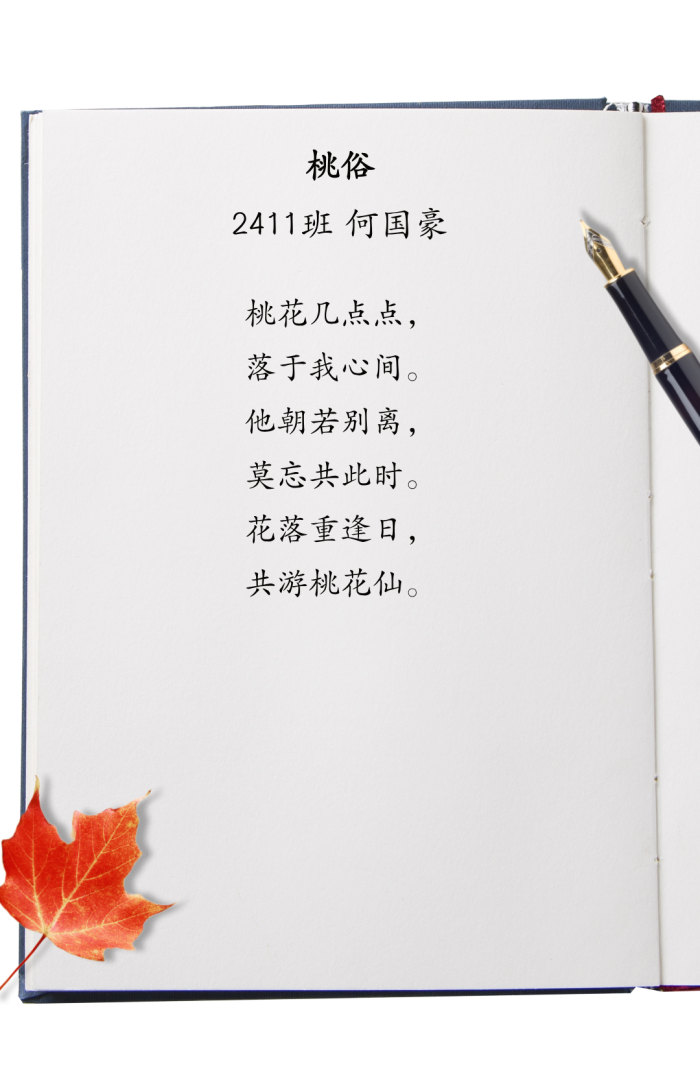 桃俗
2411班 何国豪
桃花几点点，
落于我心间。
他朝若别离，
莫忘共此时。
花落重逢日，
共游桃花仙。